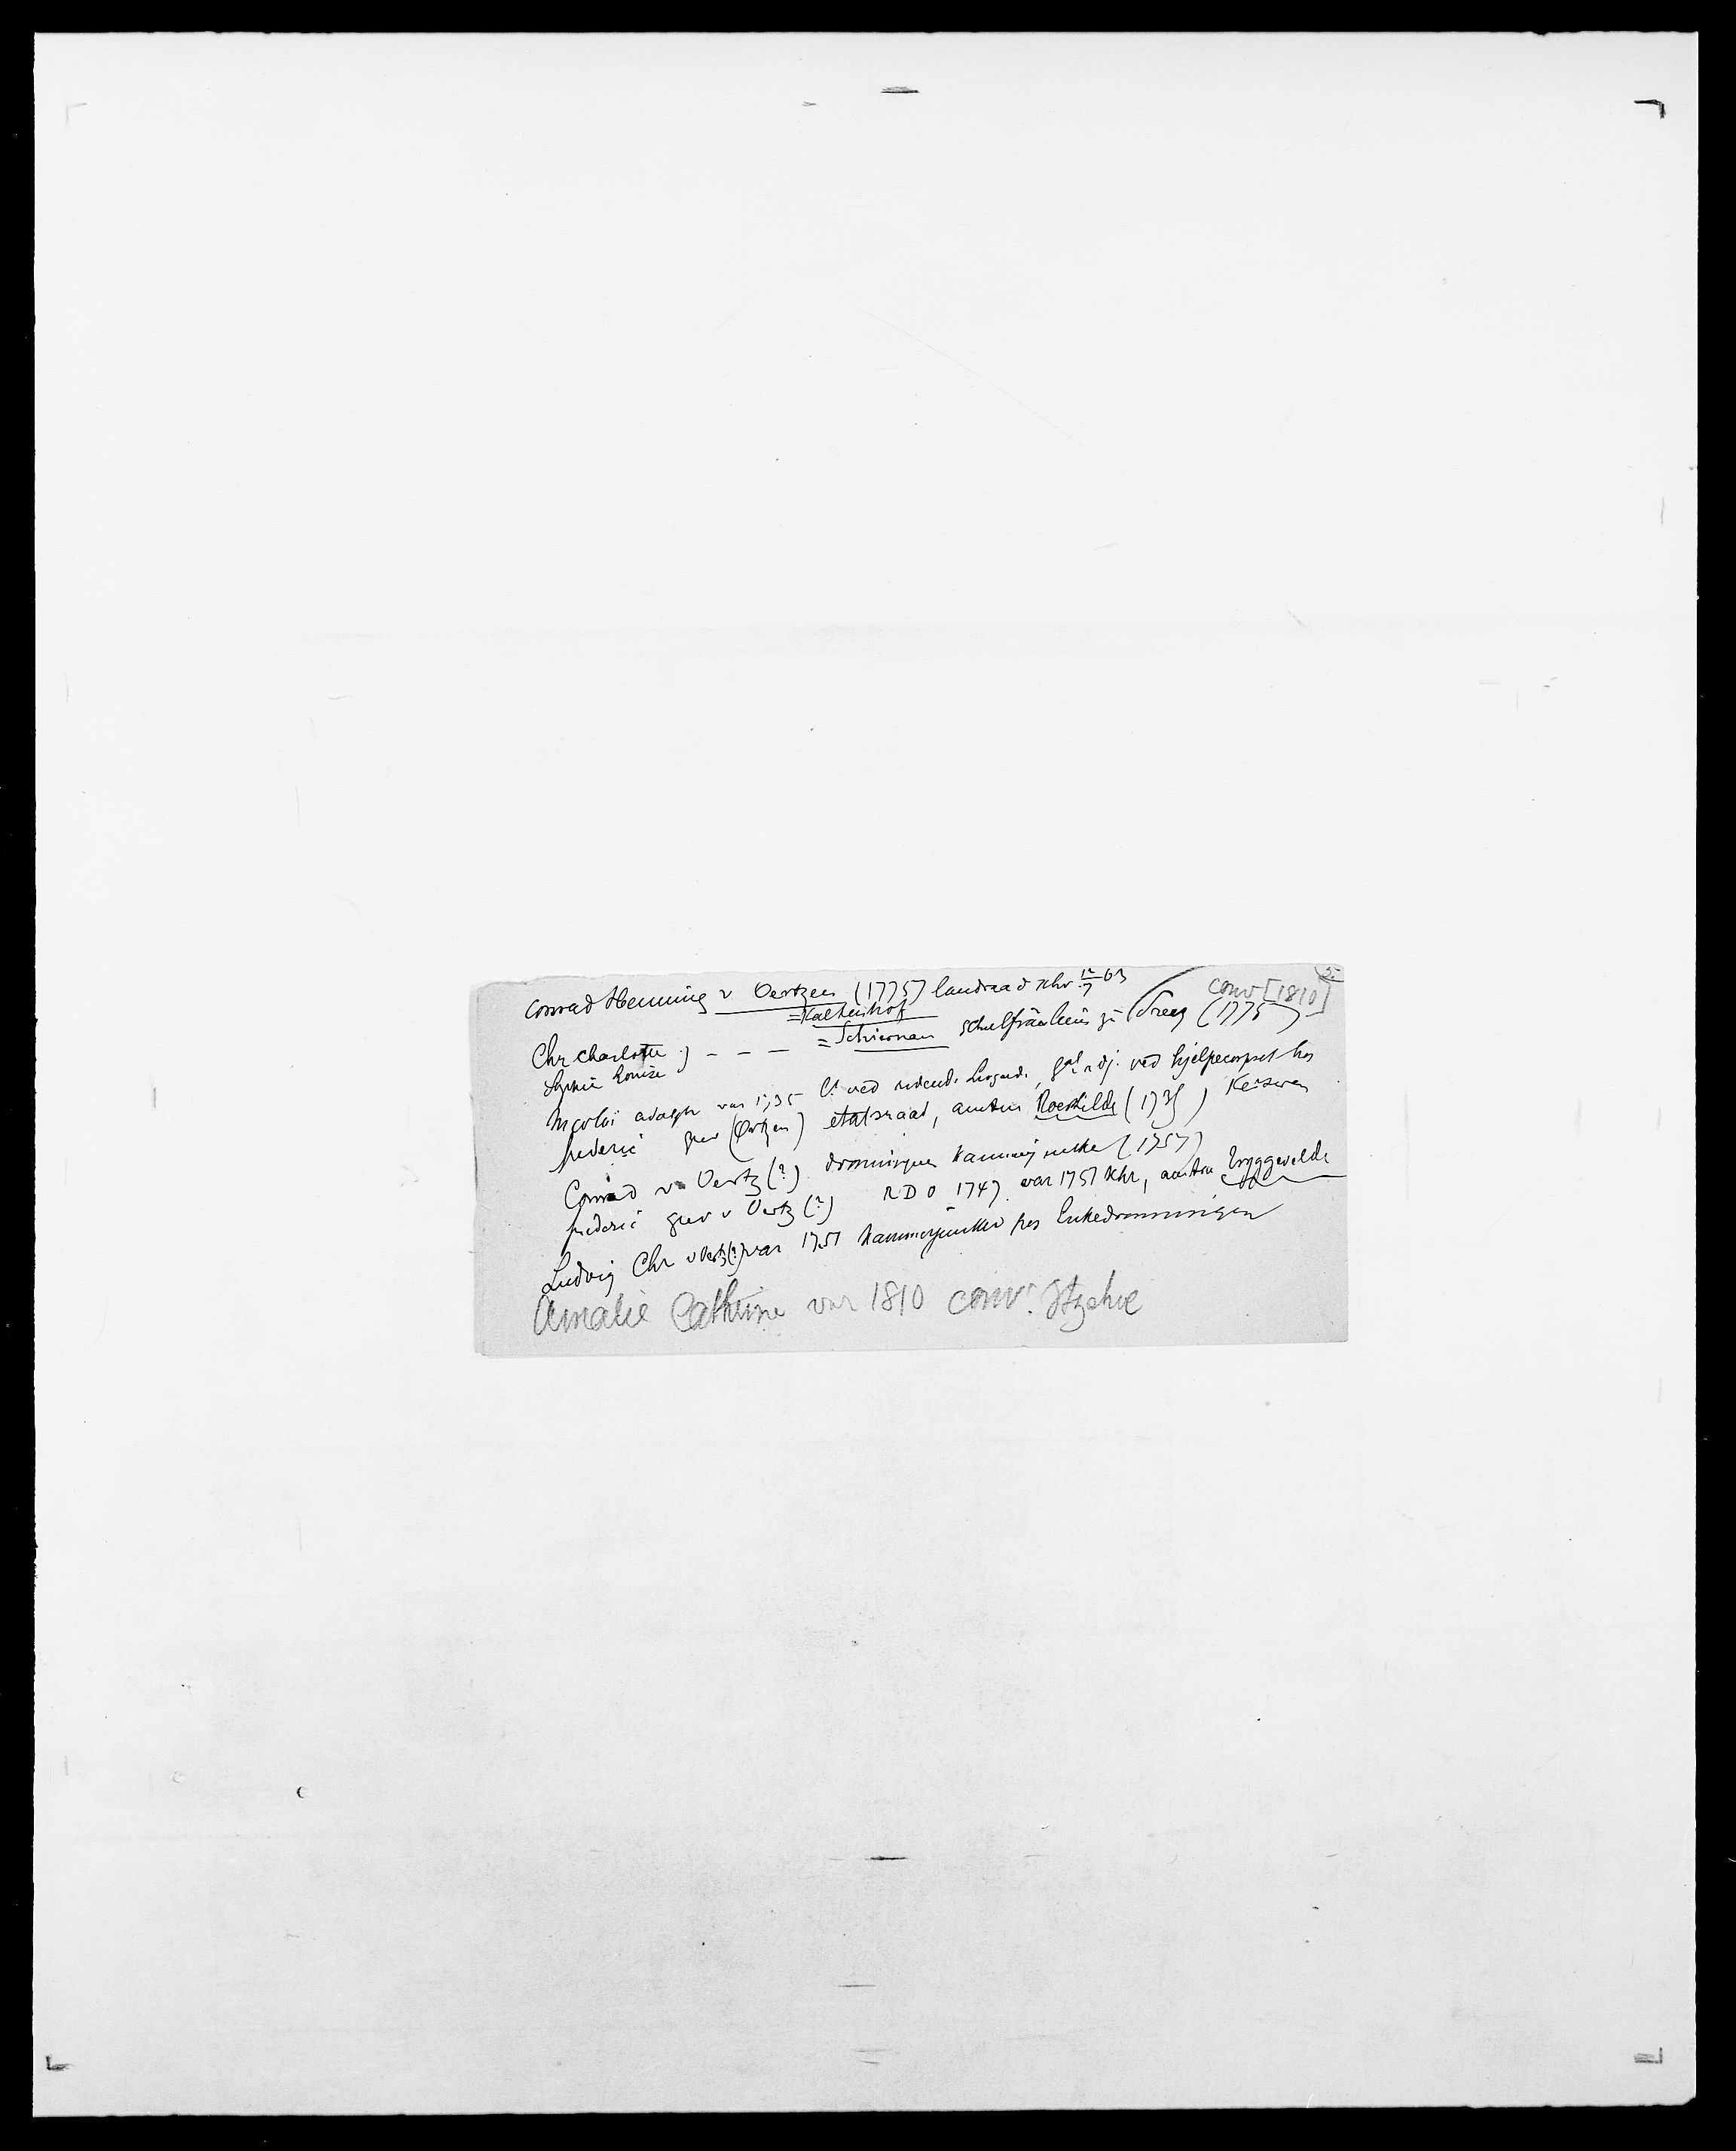 Conrad Henning v Oertzen (1775) landraad Khr 12/7 63
conv [1810]
= Kaltenhof
Chr Charlotte } - - - = Schiernau schulfräulein zu Preez (1775)
Sophie Louise
Nicolai adolph var 1735 Lt ved hjelpecorpset hos
frederic grev (Ørtzen) etatsraad, amtm Roeskilde (1735) Keiseren
Conrad v Oertz (?) dronningens Kammerjunker (1757)
frederic grev v Oertz (?) R D O 1747. var 1751 Khr, amtm Tryggevelde
Ludvig Chr v Oertz (?) var 1751 Kammerjunker hos Enkedronningen
Amalie Cathrine var 1810 conv. Itzehoe